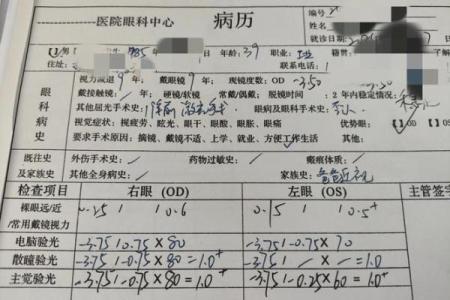 医院眼科中心 病历
编号
姓名
就诊日期
男 年龄:39 职业: 籍贯:
住址: 联系电话:
视力减退 9 年/ 戴眼镜 9 年/ 现镜度数: OD -3.50
戴接触镜: / 年/ 硬镜/软镜: 常戴/偶戴/ 现镜时间: / 2年内稳定情况:
其他屈光手术史: 眼病及眼科手术史:
视觉症状: 视疲劳、眩光、眼干、眼酸、眼胀、眼痛 优势眼: OD OS
要求手术原因: 摘镜、戴镜不适、上学、就业、方便工作生活 其他:
眼科病史
既往史及家族史
外伤手术史: / 药物过敏史: / 瘢痕体质: /
其他全身病史: / 家族史:
检查项目 右眼 (OD) 左眼 (OS) 主管签字
裸眼远/近/常用戴镜视力 0.15 / / 0.6 0.15 / / 0.5+
电脑验光 -3.75 / -0.75 × 80 -3.75 / -0.75 × 70
散瞳验光 -3.75 / -0.75 × 80 = 1.0+ -3.75 / — × — = 1.0
主觉验光 -3.75 / -0.75 × 80 = 1.0+ -3.75 / -0.25 × 60 = 1.0+